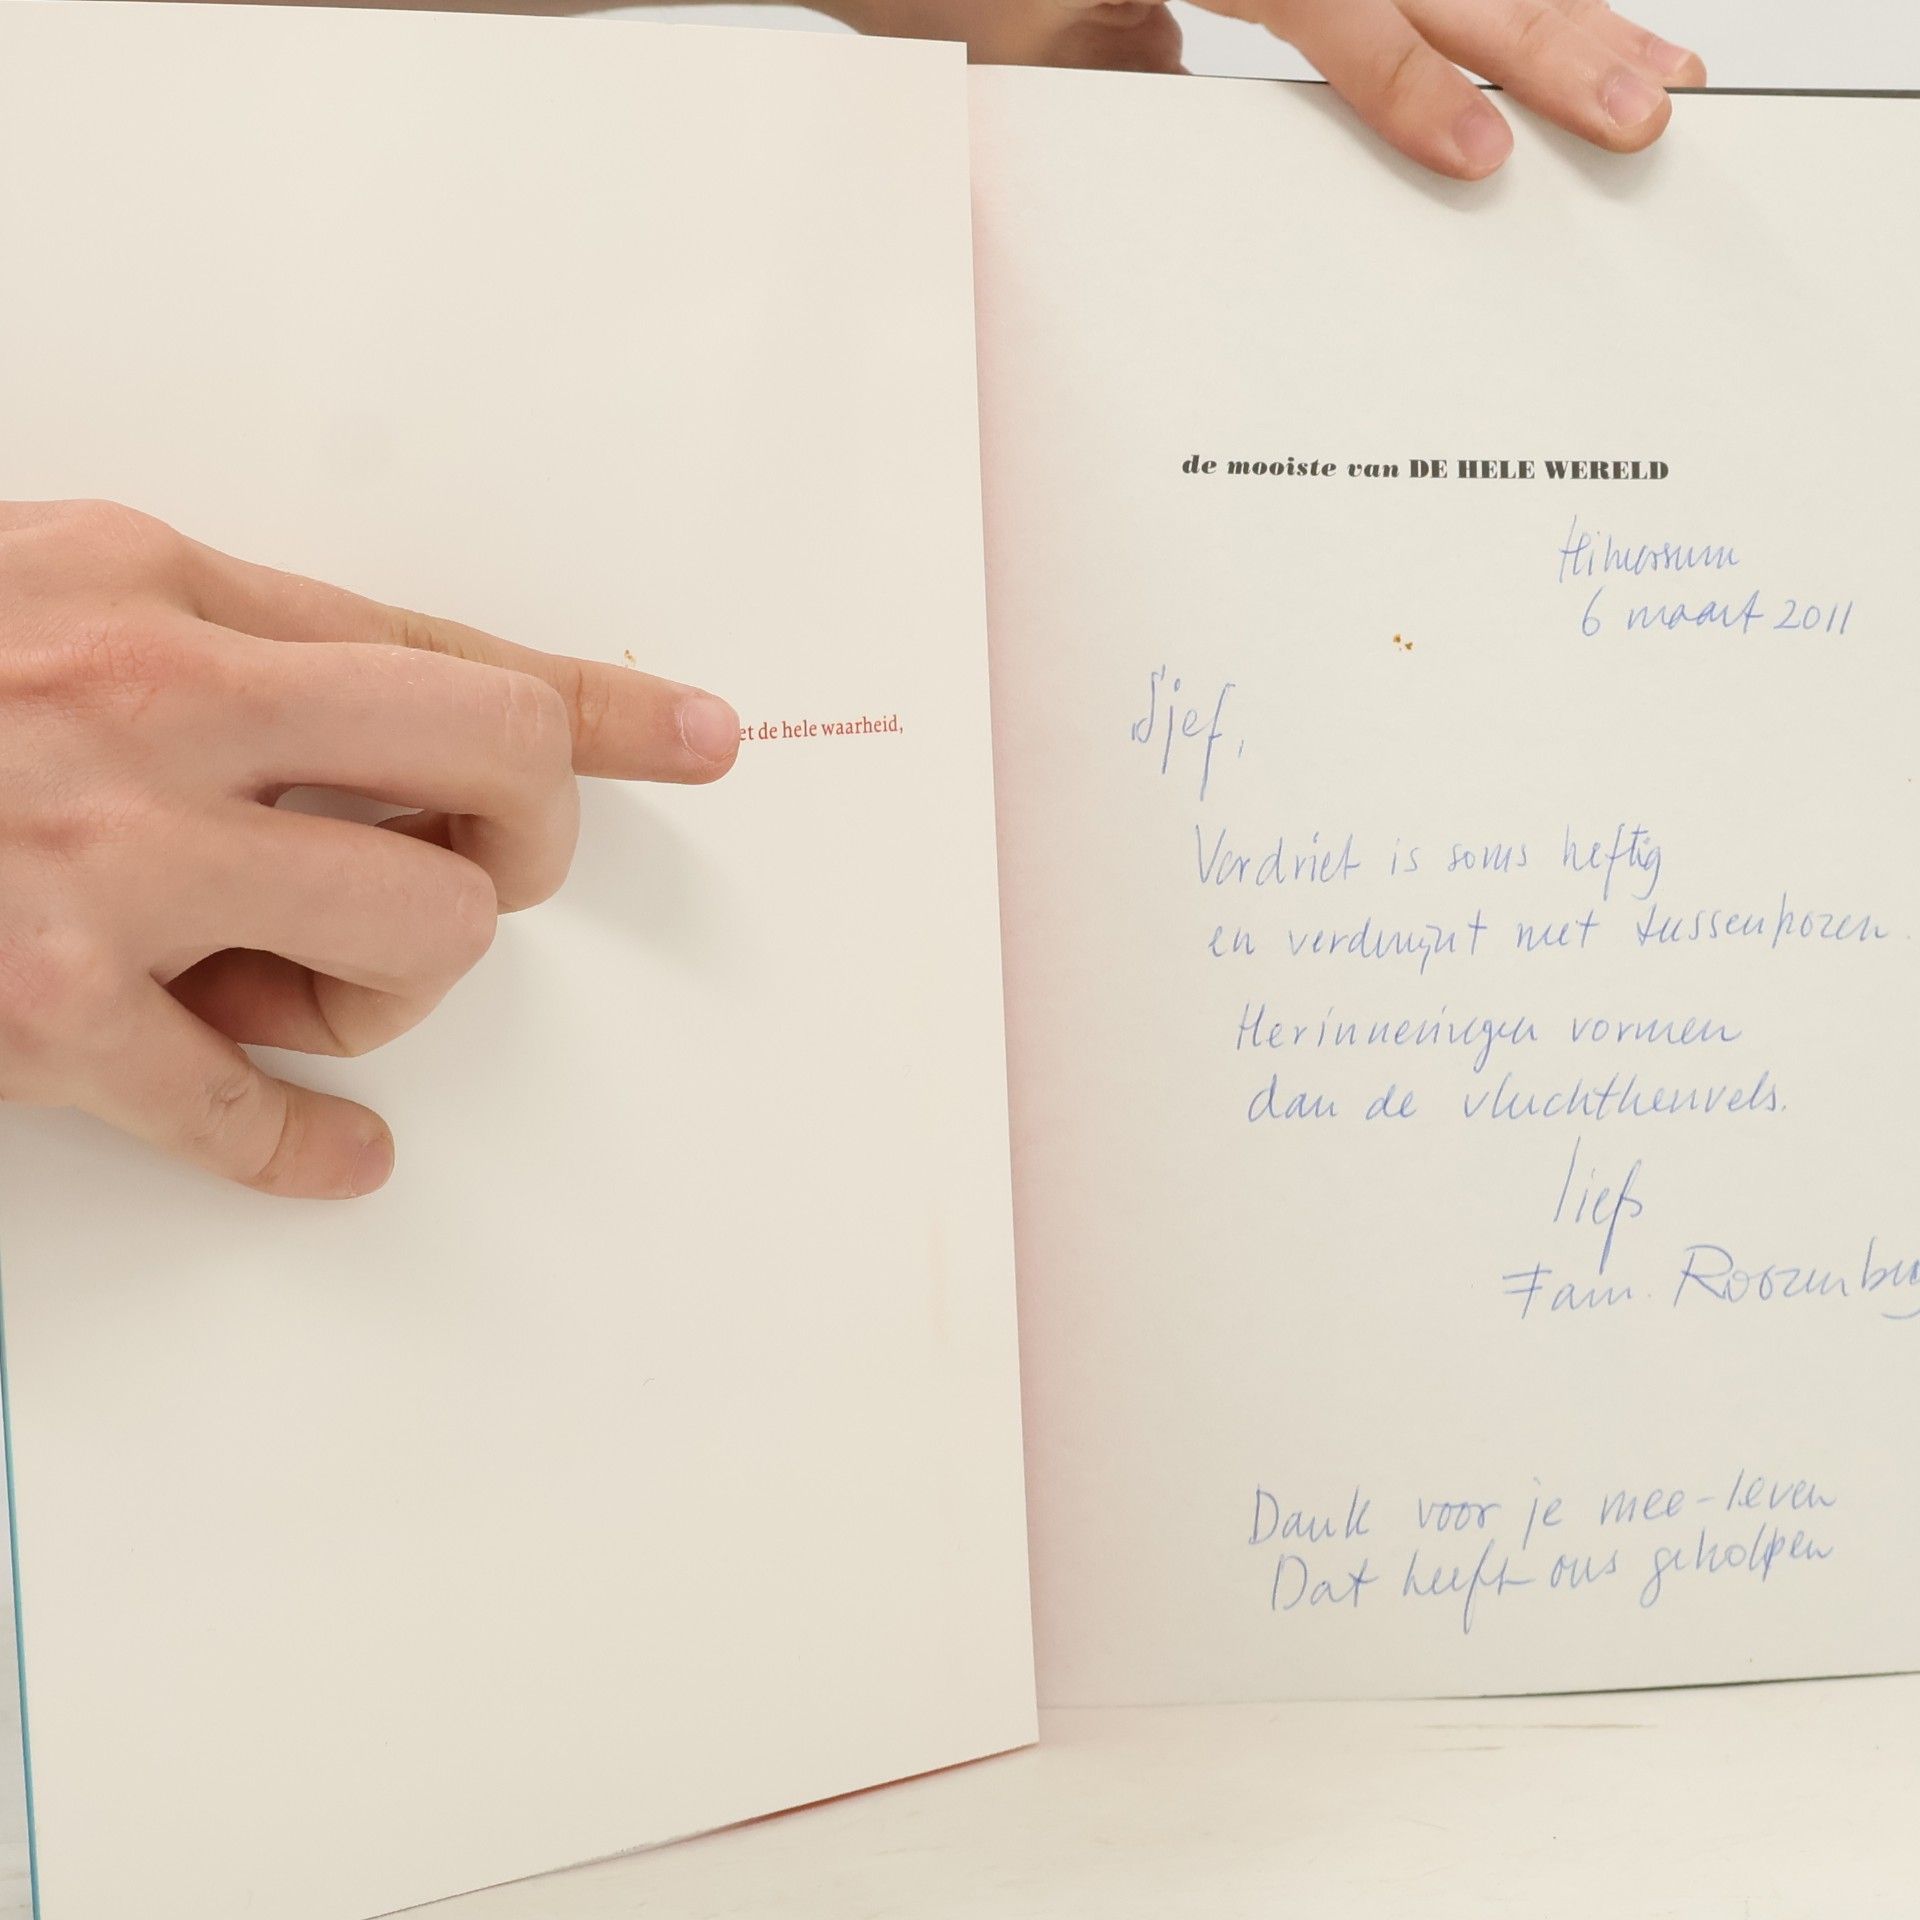 et de hele waarheid,
de mooiste van DE HELE WERELD
Hilversum
6 maart 2011
Sjef,
Verdriet is soms heftig
en verdwijnt met tussenpozen.
Herinneringen vormen
dan de vluchtheuvels.
liefs
Fam. Roozenburg
Dank voor je mee-leven
Dat heeft ons geholpen